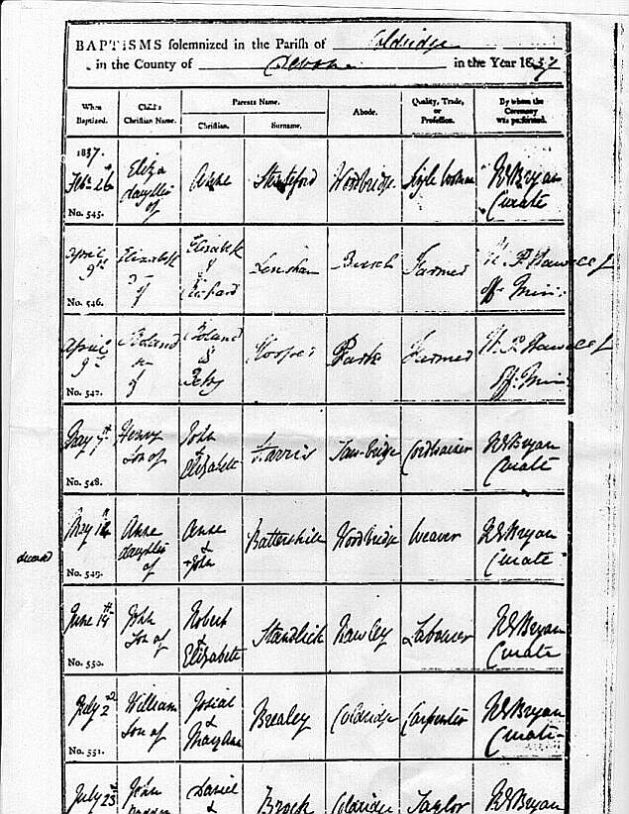 BAPTISMS solemnized in the Parish of Coldridge
in the County of Devon in the Year 1837
When Baptized. Child's Christian Name. Parents Name. Abode. Quality, Trade, or Profession. By whom the Ceremony was performed.
Christian. Surname.
1837.
Feby 26 Eliza daughter of Woodbridge Single Woman W Bryan Curate
No. 545.
April 9th Elizabeth of Elizabeth & Richard Lenihan Birch Farmer
No. 546.
April 9th Roland of Roland & Betsy Hooper Park Farmer
No. 547.
May 7th Henry Son of John & Elizabeth Harris Cordwainer W Bryan Curate
No. 548.
May 14 Anne daughter of Anne & John Battershill Woodbridge Weaver W Bryan Curate
No. 549.
June 14th John Son of Robert & Elizabeth Standlick Hawley Labourer W Bryan Curate
No. 550.
July 2d William Son of Josiah & Mary Ann Brealey Coldridge Carpenter W Bryan Curate
No. 551.
July 23d John Daniel & Brock Coldridge Taylor W Bryan